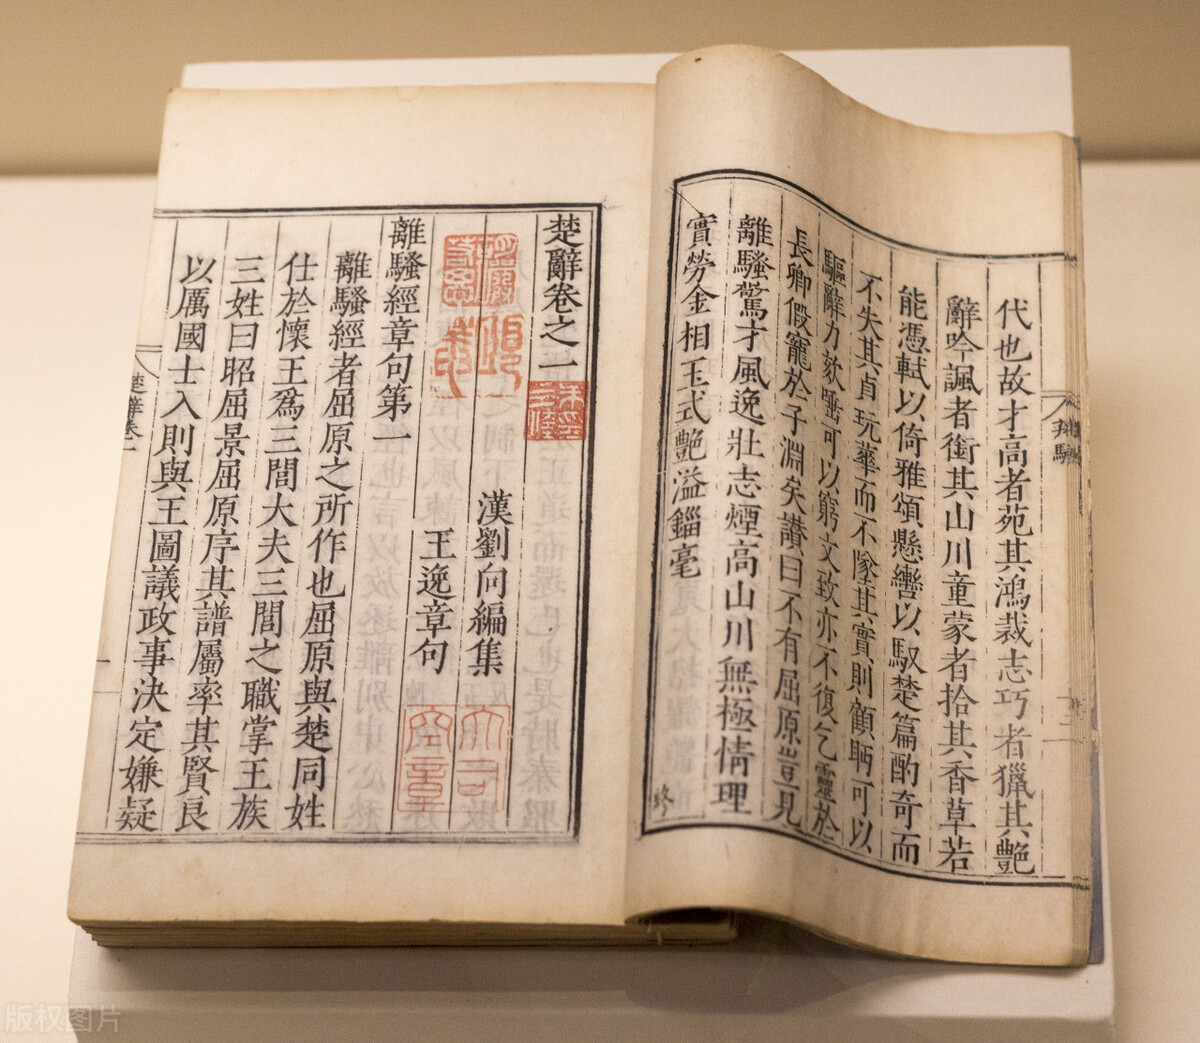 代也故才高者苑其鴻裁志巧者獵其艷
辭吟諷者銜其山川童蒙者拾其香草若
能憑軾以倚雅頌懸轡以馭楚篇酌奇而
不失其貞玩華而不墜其實則顧眄可以
驅辭力欬唾可以窮文致亦不復乞靈於
長卿假寵於子淵矣讃曰不有屈原豈見
離騷驚才風逸壯志煙高山川無極情理
實勞金相玉式艷溢錙毫
終
楚辭卷之一
漢劉向編集
王逸章句
離騷經章句第一
離騷經者屈原之所作也屈原與楚同姓
仕於懷王爲三閭大夫三閭之職掌王族
三姓曰昭屈景屈原序其譜屬率其賢良
以厲國士入則與王圖議政事決定嫌疑
楚辭卷一
一
版权图片